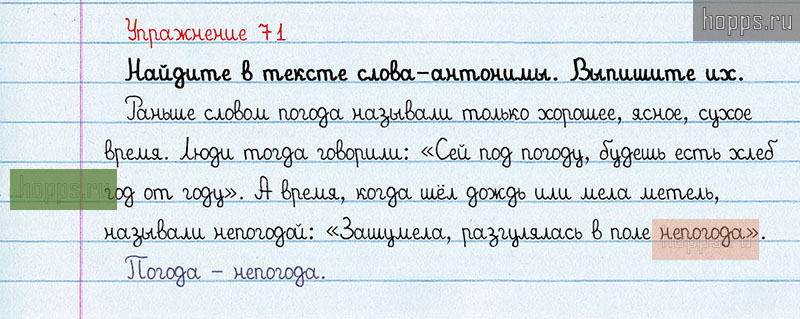 hopps.ru
Упражнение 71
Найдите в тексте слова-антонимы. Выпишите их.
Раньше словом погода называли только хорошее, ясное, сухое
время. Люди тогда говорили: «Сей под погоду, будешь есть хлеб
год от году». А время, когда шёл дождь или мела метель,
называли непогодой: «Зашумела, разгулялась в поле непогода».
Погода – непогода.
hopps.ru
hopps.ru